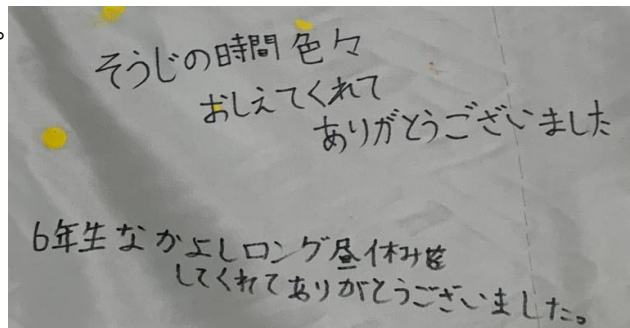 そうじの時間色々
おしえてくれて
ありがとうございました
6年生なかよしロング昼休みを
してくれてありがとうございました。